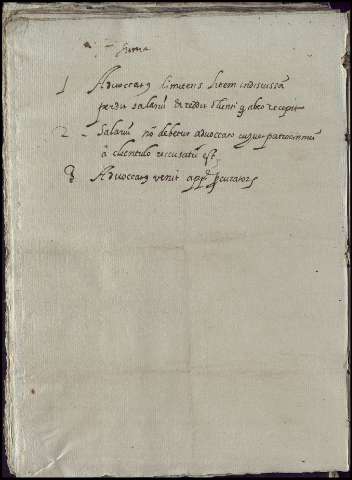 Suma
1 Advoccatus limitens litem indiscussã
perdit salariũ et reddit clienti q ab eo recepit
2 Salariũ nõ debetur advoccato cuius patrocinium
â clientulo reccusatũ est
3 Advoccatus venit app procuratoris